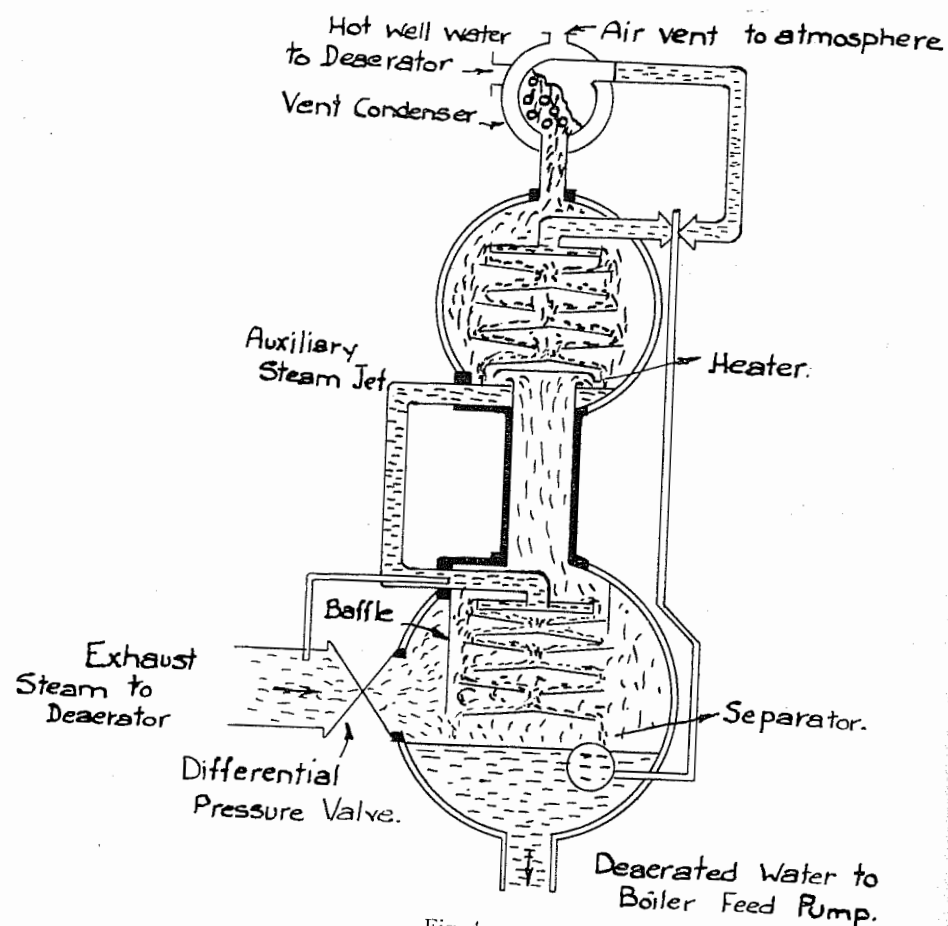 Hot Well Water
to Deaerator
Air vent to atmosphere
Vent Condenser
Auxiliary
Steam Jet
Heater.
Baffle
Exhaust
Steam to
Deaerator
Separator.
Differential
Pressure Valve.
Deaerated Water to
Boiler Feed Pump.